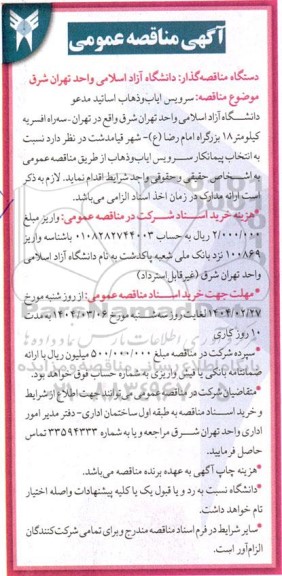 آگهی مناقصه عمومی
دستگاه مناقصه‌گذار: دانشگاه آزاد اسلامی واحد تهران شرق
موضوع مناقصه: سرویس ایاب‌وذهاب اساتید مدعو
دانشگاه آزاد اسلامی واحد تهران شرق واقع در تهران-سه‌راه افسریه
کیلومتر ۱۸ بزرگراه امام رضا (ع)- شهر قیامدشت در نظر دارد نسبت
به انتخاب پیمانکار سرویس ایاب‌وذهاب از طریق مناقصه عمومی
به اشخاص حقیقی و حقوقی واجد شرایط اقدام نماید. لازم به ذکر
است ارائه مدارک در زمان اخذ اسناد الزامی می‌باشد.
*هزینه خرید اسناد شرکت در مناقصه عمومی: واریز مبلغ
۲/۰۰۰/۰۰۰ ریال به حساب ۰۱۰۸۲۸۲۷۴۴۰۰۳ باشناسه واریز
۱۰۰۸۶۹ نزد بانک ملی شعبه پاکدشت به نام دانشگاه آزاد اسلامی
واحد تهران شرق (غیرقابل استرداد)
*مهلت جهت خرید اسناد مناقصه عمومی: از روز شنبه مورخ
۱۴۰۴/۰۲/۲۷ لغایت روز سه‌شنبه مورخ ۱۴۰۴/۰۳/۰۶ به مدت
۱۰ روز کاری
*سپرده شرکت در مناقصه مبلغ ۵۰۰/۰۰۰/۰۰۰ میلیون ریال با ارائه
ضمانتنامه بانکی یا فیش واریزی به شماره حساب فوق خواهد بود.
*متقاضیان شرکت در مناقصه عمومی می‌توانند جهت اطلاع از شرایط
و خرید اسناد مناقصه به طبقه اول ساختمان اداری- دفتر مدیر امور
اداری واحد تهران شرق مراجعه و یا به شماره ۳۳۵۹۴۳۳۳ تماس
حاصل فرمایید.
*هزینه چاپ آگهی به عهده برنده مناقصه می‌باشد.
*دانشگاه نسبت به رد و یا قبول یک یا کلیه پیشنهادات واصله اختیار
تام خواهد داشت.
*سایر شرایط در فرم اسناد مناقصه مندرج و برای تمامی شرکت‌کنندگان
الزام‌آور است.